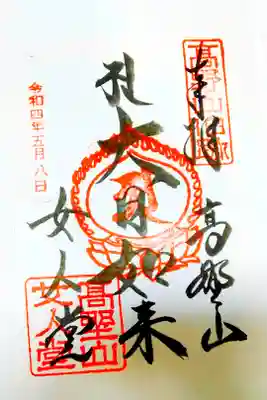 奉拝
高野山
大日如来
女人堂
令和四年五月八日
高野山
女人堂